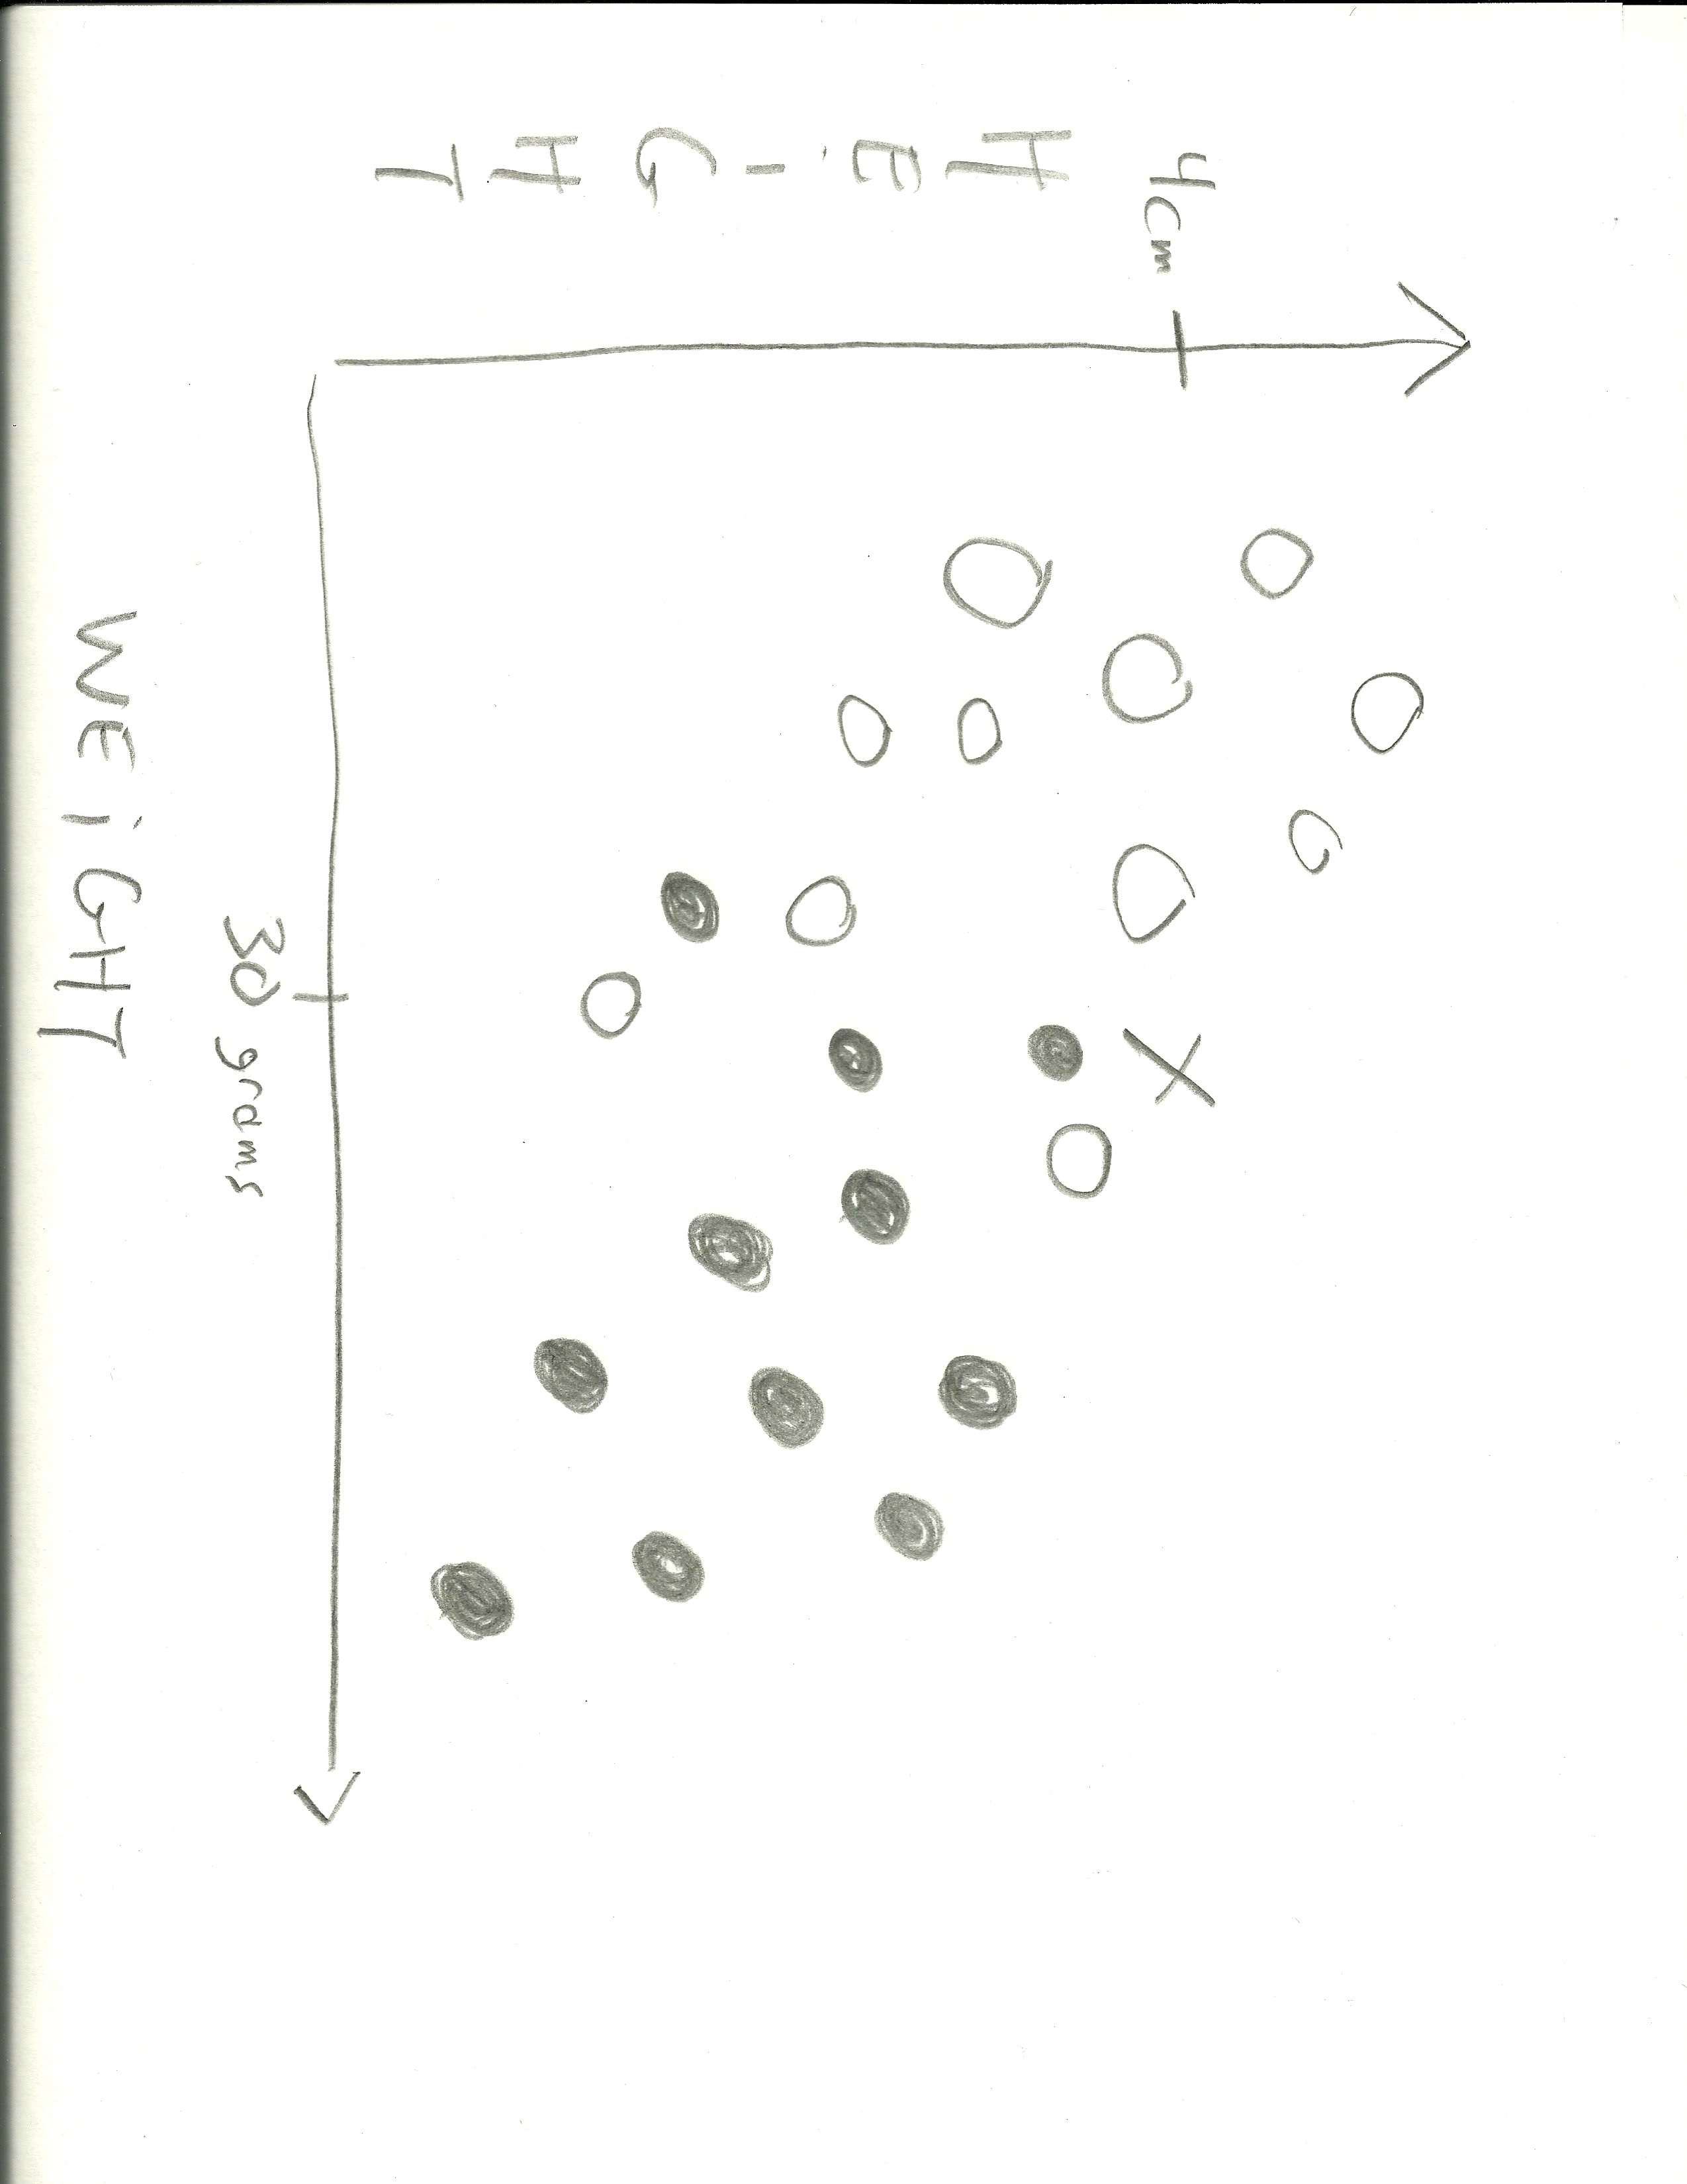 4cm
HEIGHT
30 grams
WEiGHT